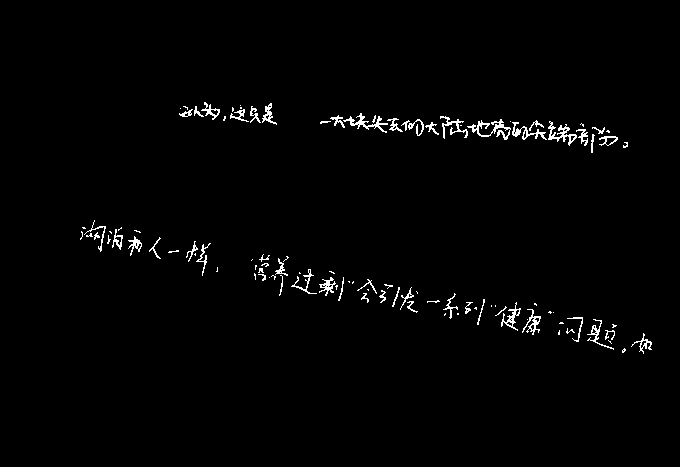 认为，这只是 一大块失去的大陆地壳的尖端部分。
湖泊和人一样，"营养过剩"会引发一系列"健康"问题。如